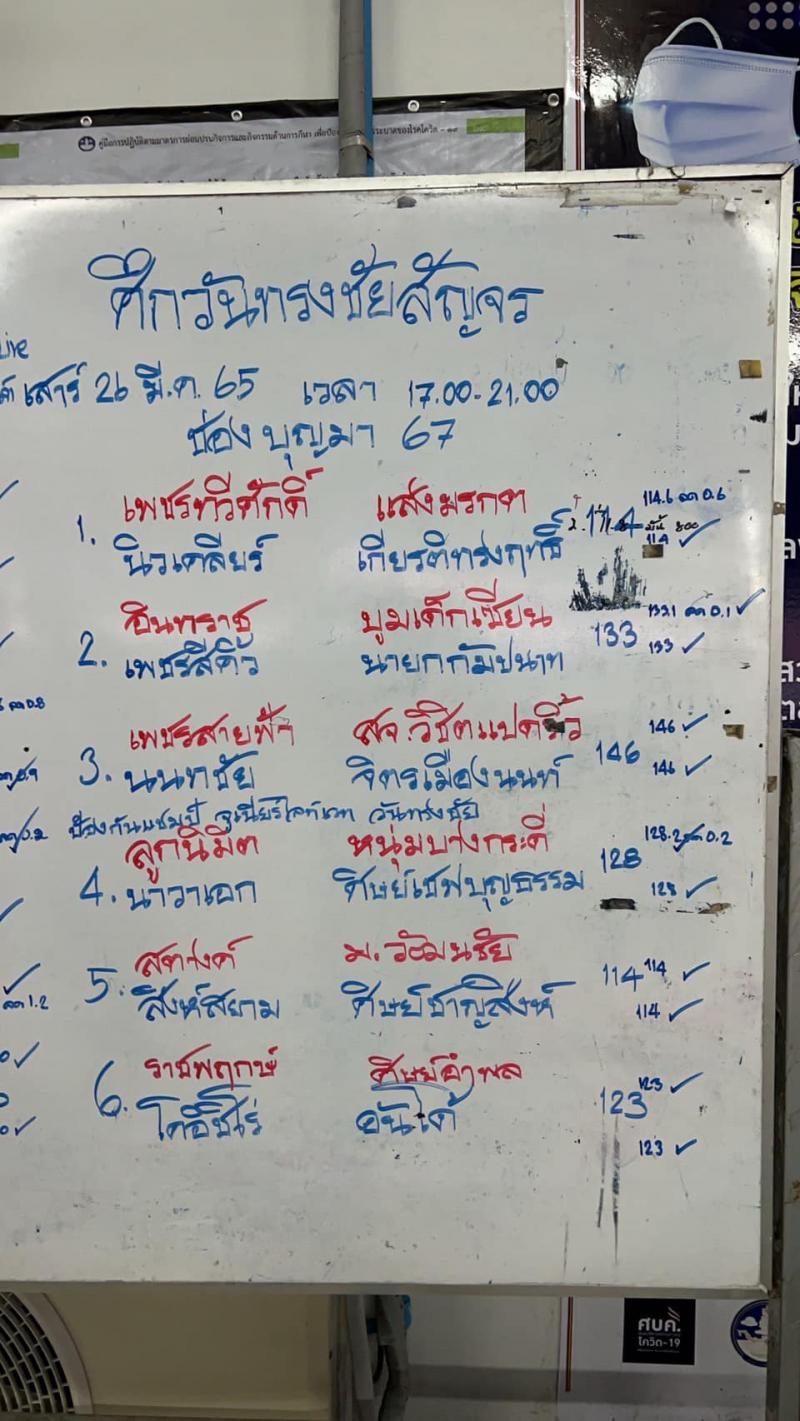 คู่มือการปฏิบัติตามมาตรการผ่อนปรนกิจการและกิจกรรมด้านการกีฬา
ระบาดของโรคโควิด - ๑๙
ศึกวันทรงชัยสัญจร
Live
เสาร์ 26 มี.ค. 65 เวลา 17.00-21.00
ช่อง บุญมา 67
1. เพชรทวีศักดิ์ แสงมรกต 114 114.6 ลด 0.6
นิวเคลียร์ เกียรติทรงฤทธิ์ 114 ✓
2. อินทราชู บูมเด็กเซียน 133 133.1 ลด 0.1 ✓
เพชรสีคิ้ว นายกกัมปนาท 133 ✓
3. เพชรสายฟ้า สจ.วิชิตแปดริ้ว 146 146 ✓
นนทชัย จิตรเมืองนนท์ 146 ✓
ป้องกันแชมป์ จูเนียร์ไลท์เวท วันทรงชัย
4. ลูกนิมิต หนุ่มบางกระดี่ 128 128.2 ลด 0.2
นาวาเอก ศิษย์เชฟบุญธรรม 128 ✓
5. สตางค์ ม.วัฒนชัย 114 114 ✓
สิงห์สยาม ศิษย์ชาญสิงห์ 114 ✓
6. ราชพฤกษ์ ศิษย์อำพล 123 123 ✓
โคอิชิโร่ อันโด้ 123 ✓
ลด 1.2
ศบค.
โควิด-19